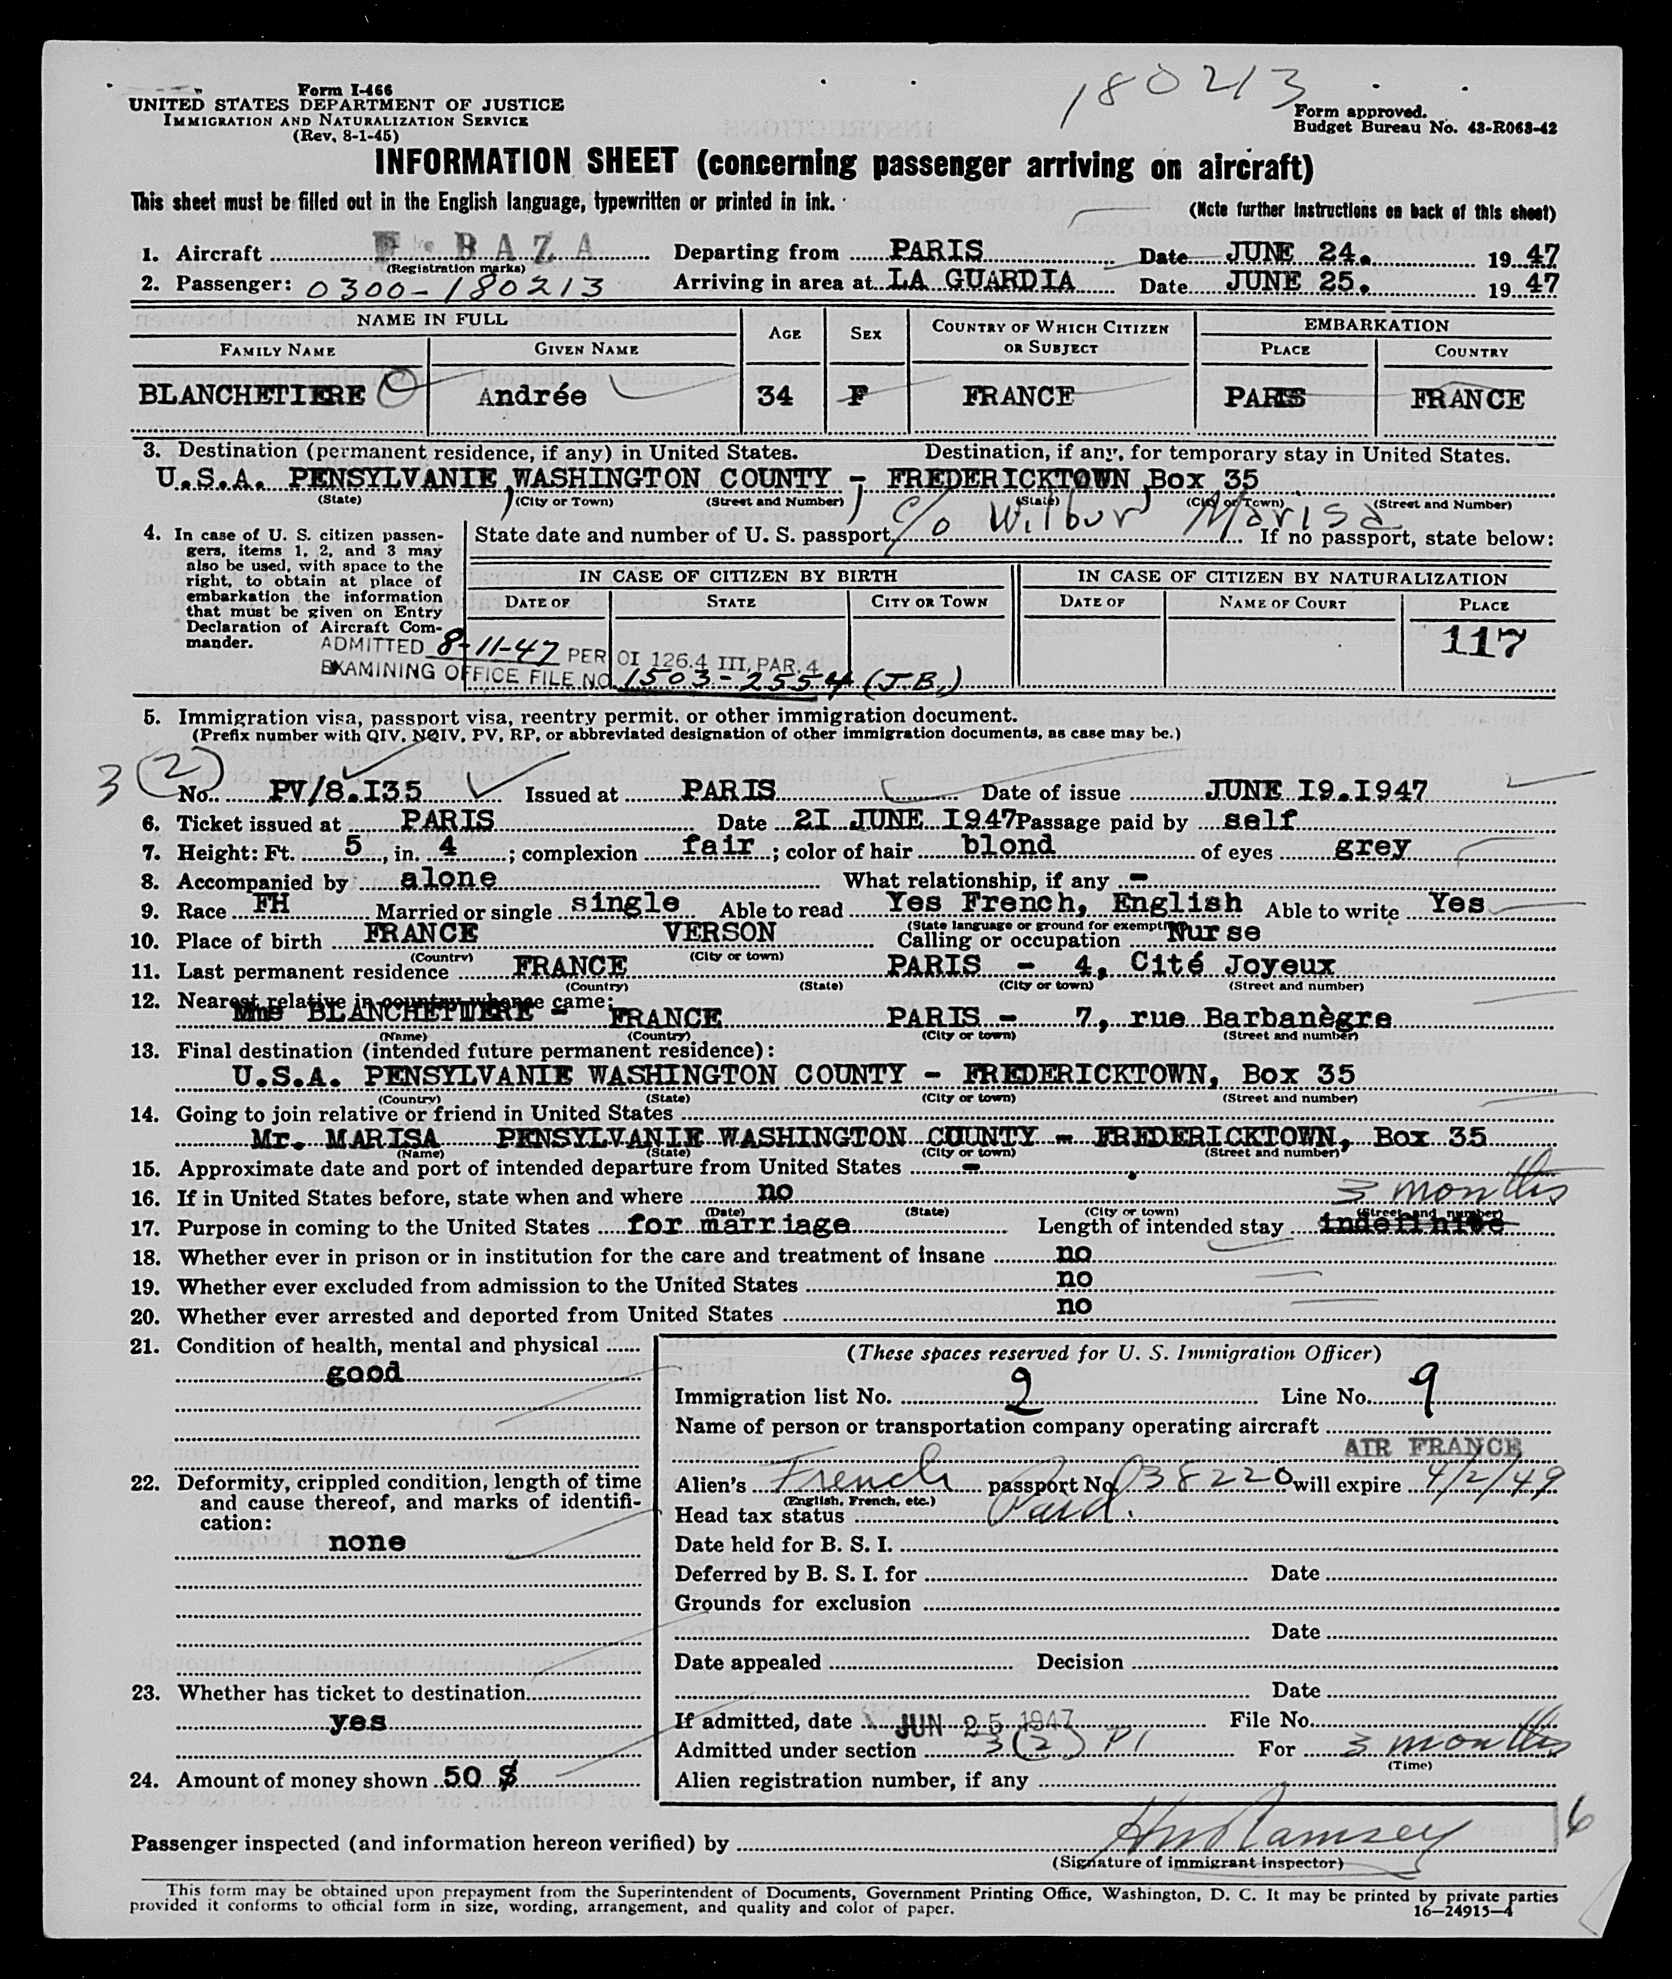 180213
Form I-466
UNITED STATES DEPARTMENT OF JUSTICE
IMMIGRATION AND NATURALIZATION SERVICE
(Rev. 8-1-45)
Form approved.
Budget Bureau No. 43-R068-42
INFORMATION SHEET (concerning passenger arriving on aircraft)
This sheet must be filled out in the English language, typewritten or printed in ink.
(Note further instructions on back of this sheet)
1. Aircraft F BAZA Departing from PARIS Date JUNE 24. 1947
(Registration marks)
2. Passenger: 0300-180213 Arriving in area at LA GUARDIA Date JUNE 25. 1947
NAME IN FULL AGE SEX COUNTRY OF WHICH CITIZEN OR SUBJECT EMBARKATION
FAMILY NAME GIVEN NAME PLACE COUNTRY
BLANCHETIERE Andrée 34 F FRANCE PARIS FRANCE
3. Destination (permanent residence, if any) in United States. Destination, if any, for temporary stay in United States.
U.S.A. PENSYLVANIE, WASHINGTON COUNTY - FREDERICKTOWN, Box 35
(State) (City or Town) (Street and Number) (State) (City or Town) (Street and Number)
c/o Wilbur Marisa
4. In case of U. S. citizen passengers, items 1, 2, and 3 may
also be used, with space to the
right, to obtain at place of
embarkation the information
that must be given on Entry
Declaration of Aircraft Commander.
State date and number of U. S. passport If no passport, state below:
IN CASE OF CITIZEN BY BIRTH IN CASE OF CITIZEN BY NATURALIZATION
DATE OF STATE CITY OR TOWN DATE OF NAME OF COURT PLACE
117
ADMITTED 8-11-47 PER OI 126.4 III, PAR. 4
EXAMINING OFFICE FILE NO. 1503-2554 (J.B.)
5. Immigration visa, passport visa, reentry permit, or other immigration document.
(Prefix number with QIV, NQIV, PV, RP, or abbreviated designation of other immigration documents, as case may be.)
3 (2)
No. PV/8.I35 Issued at PARIS Date of issue JUNE I9.I947
6. Ticket issued at PARIS Date 2I JUNE I947 Passage paid by self
7. Height: Ft. 5, in. 4; complexion fair; color of hair blond of eyes grey
8. Accompanied by alone What relationship, if any -
9. Race FH Married or single single Able to read Yes French, English Able to write Yes
(State language or ground for exemption)
10. Place of birth FRANCE VERSON Calling or occupation Nurse
(Country) (City or town)
11. Last permanent residence FRANCE PARIS - 4, Cité Joyeux
(Country) (State) (City or town) (Street and number)
12. Nearest relative in country whence came:
Mme BLANCHETIERE - FRANCE PARIS - 7, rue Barbanègre
(Name) (Country) (City or town) (Street and number)
13. Final destination (intended future permanent residence):
U.S.A. PENSYLVANIE WASHINGTON COUNTY - FREDERICKTOWN, Box 35
(Country) (State) (City or town) (Street and number)
14. Going to join relative or friend in United States
Mr. MARISA PENSYLVANIE WASHINGTON COUNTY - FREDERICKTOWN, Box 35
(Name) (State) (City or town) (Street and number)
15. Approximate date and port of intended departure from United States -
16. If in United States before, state when and where no 3 months
(Date) (State) (City or town) (Street and number)
17. Purpose in coming to the United States for marriage Length of intended stay indefinite
18. Whether ever in prison or in institution for the care and treatment of insane no
19. Whether ever excluded from admission to the United States no
20. Whether ever arrested and deported from United States no
21. Condition of health, mental and physical
good
22. Deformity, crippled condition, length of time
and cause thereof, and marks of identification:
none
23. Whether has ticket to destination
yes
24. Amount of money shown 50 $
(These spaces reserved for U. S. Immigration Officer)
Immigration list No. 2 Line No. 9
Name of person or transportation company operating aircraft
AIR FRANCE
Alien's French passport No. 38220 will expire 4/2/49
(English, French, etc.)
Head tax status Paid.
Date held for B. S. I.
Deferred by B. S. I. for Date
Grounds for exclusion
Date
Date appealed Decision
Date
If admitted, date JUN 25 1947 File No.
Admitted under section 3(2) P1 For 3 months
(Time)
Alien registration number, if any
6
Passenger inspected (and information hereon verified) by HW Ramsey
(Signature of immigrant inspector)
This form may be obtained upon prepayment from the Superintendent of Documents, Government Printing Office, Washington, D. C. It may be printed by private parties
provided it conforms to official form in size, wording, arrangement, and quality and color of paper.
16-24915-4